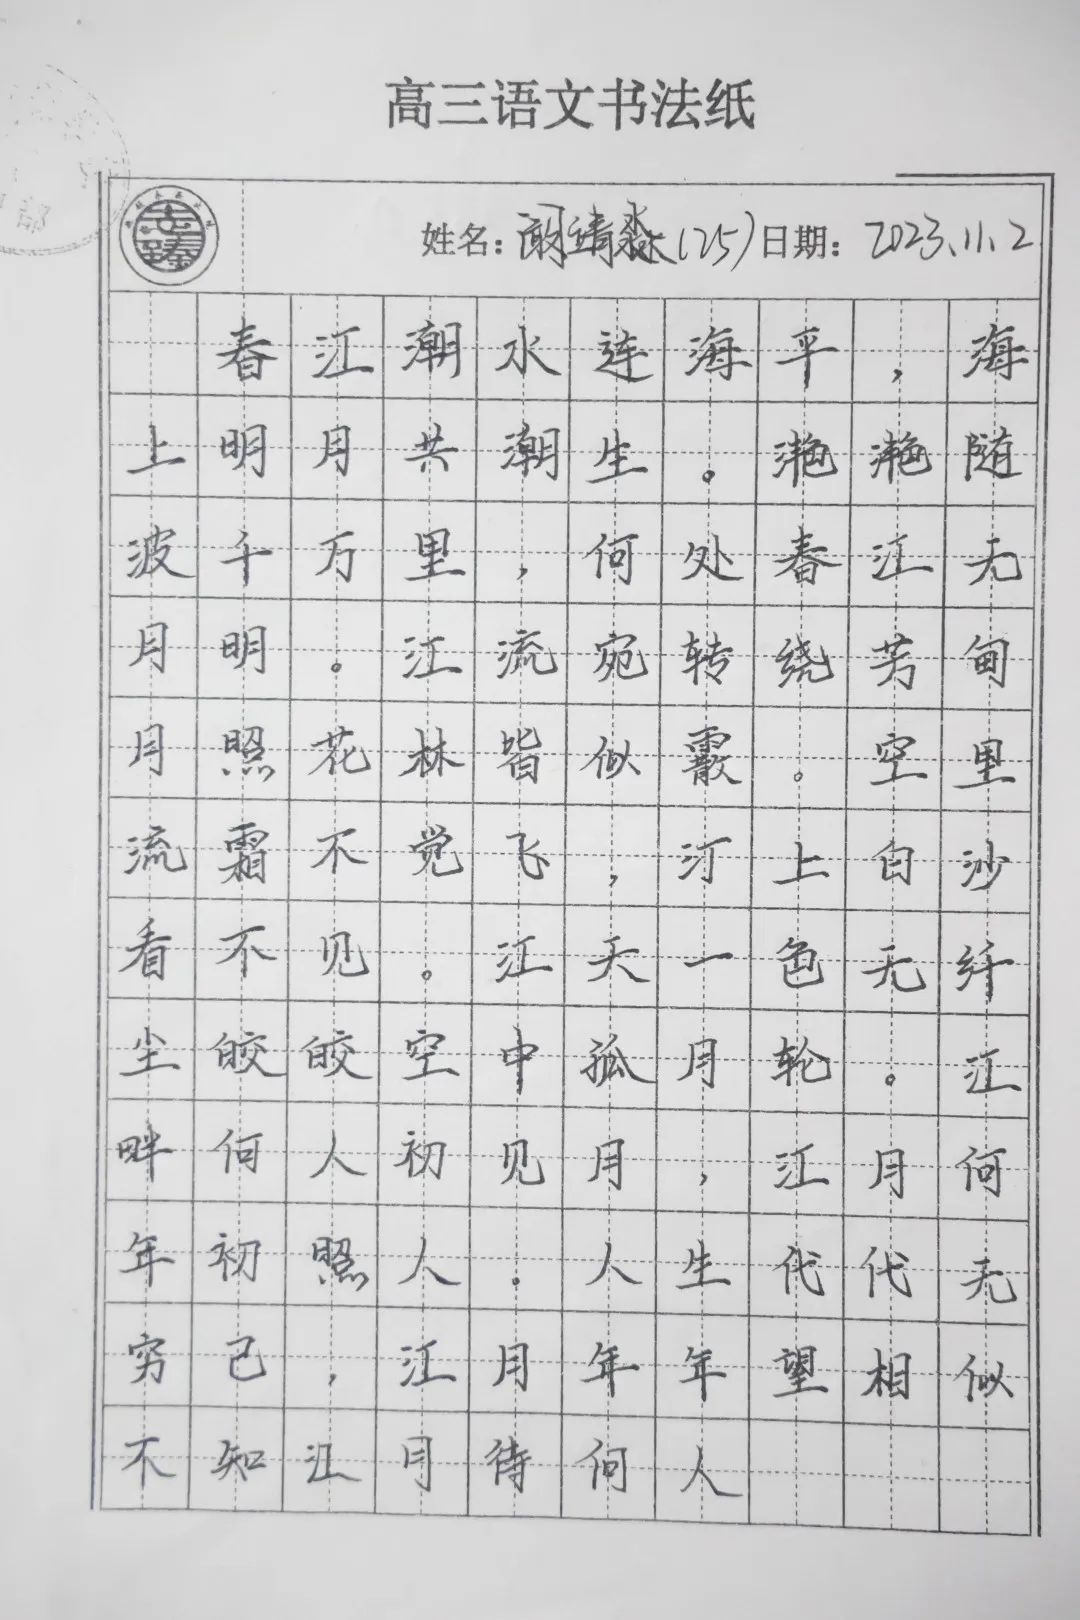 高三语文书法纸
部
姓名：阚靖淼(25) 日期：2023.11.2
春江潮水连海平，海
上明月共潮生。滟滟随
波千万里，何处春江无
月明。江流宛转绕芳甸
月照花林皆似霰。空里
流霜不觉飞，汀上白沙
看不见。江天一色无纤
尘皎皎空中孤月轮。江
畔何人初见月，江月何
年初照人.人生代代无
穷己，江月年年望相似
不知江月待何人